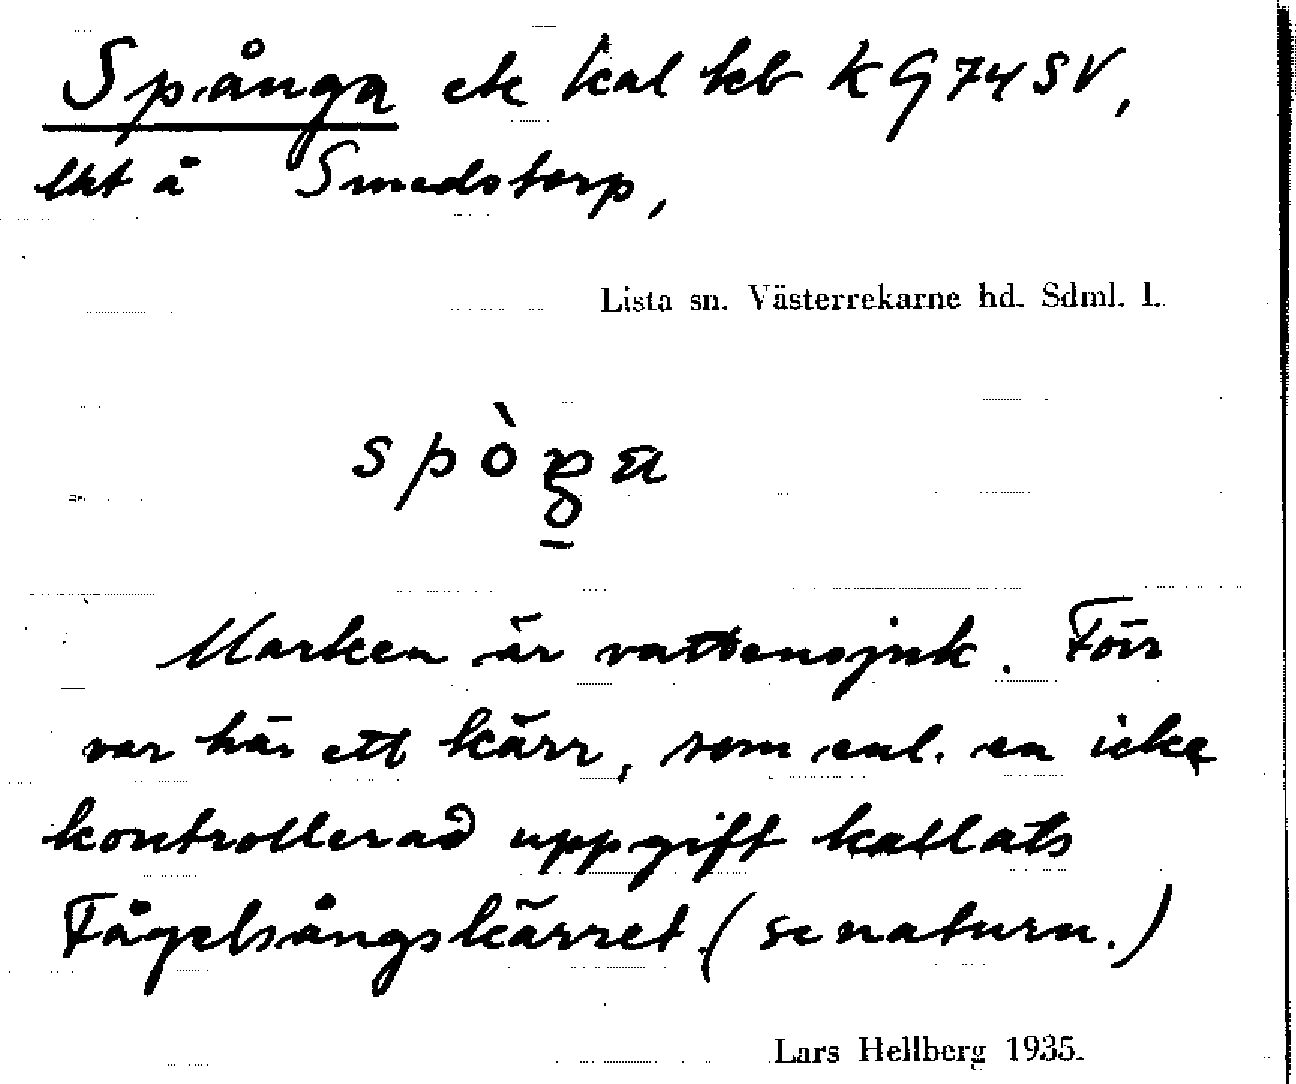 Spånga ek kal kb K G74 SV,
lht å Smedstorp,
Lista sn. Västerrekarne hd. Sdml. l.
Marken är vattensjuk. Förr
var här ett kärr, som enl. en icke
kontrollerad uppgift kallats
Fågelsångskärret. (se naturn.)
Lars Hellberg 1935.